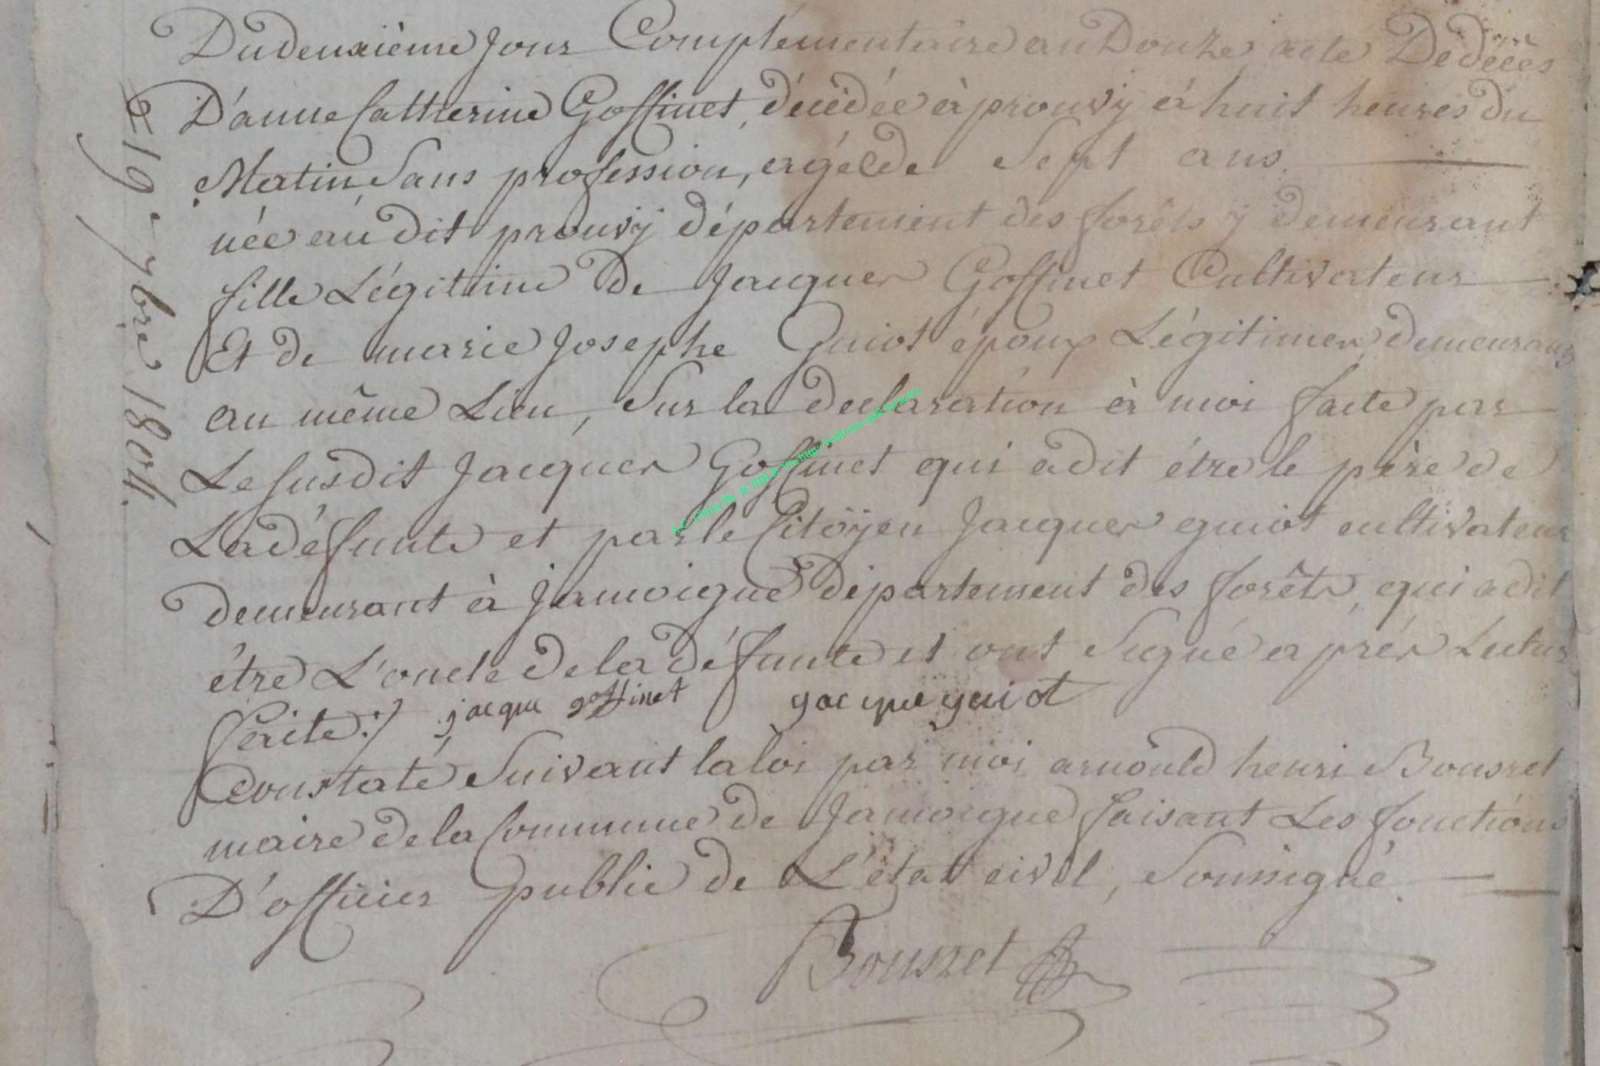 Du deuxième jour Complémentaire an Douze acte De décès
D'anne Catherine Goffinet, décédée à prouvy à huit heures du
Matin, Sans profession, agée de Sept ans
née au dit prouvÿ département des forêts y demeurant
fille Légitime De Jacques Goffinet Cultivateur
Et de marie Josephe Guiot époux Légitimes, demeurans
au même Lieu, Sur la déclaration à moi faite par
Le susdit Jacques Goffinet qui a dit être le père de
La défunte et par le Citoÿen Jacques guiot cultivateur
demeurant à Jamoigne département des forêts, qui a dit
être L'oncle de la défunte et ont Signé après Lecture
faite :/ jacque goffinet jacque guiot
Constaté Suivant la loi par moi arnould henri Bousret
maire de la Commune de Jamoigne faisant Les fonctions
D'officier public de L'état civil, Soussigné
Bousret
19 7bre 1804.